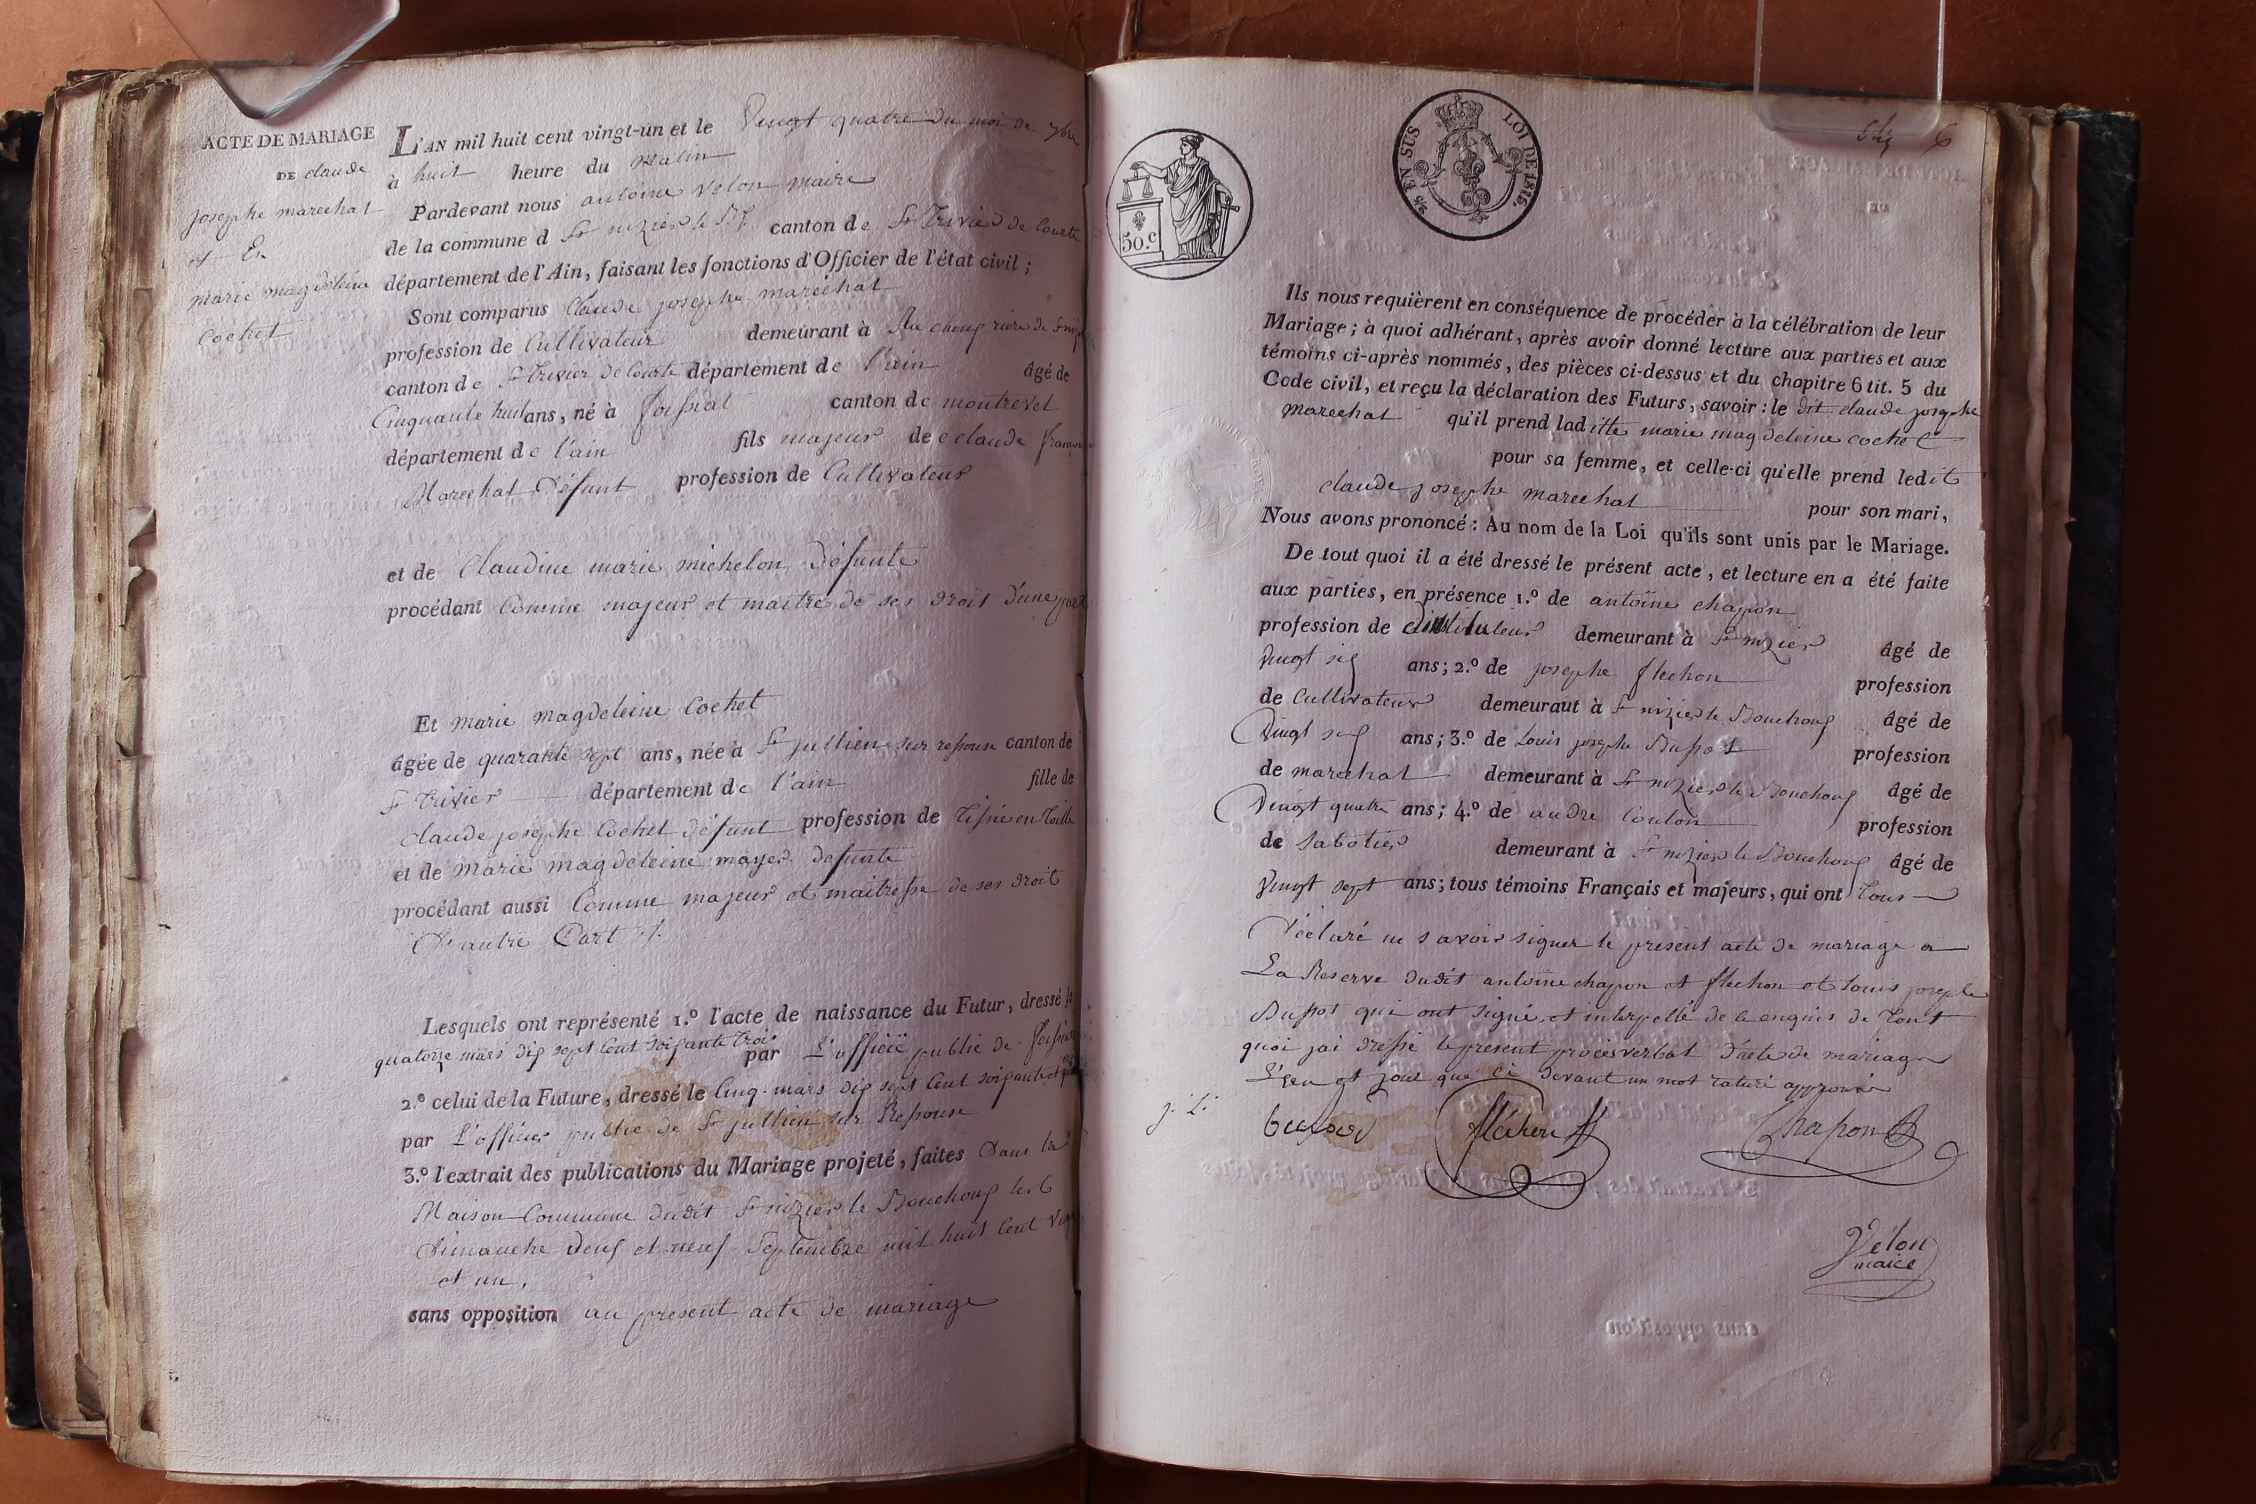 ACTE DE MARIAGE
DE claude
josephe marechal
et
marie magdeleine
cochet
L'AN mil huit cent vingt-un et le Vingt quatre du moi de 7bre
à huit heure du matin
Pardevant nous antoine velon maire
de la commune d St nizier le Bx canton de St Trivier de Courte
département de l'Ain, faisant les fonctions d'Officier de l'état civil;
Sont comparus Claude josephe maréchal
profession de Cultivateur demeurant à Au de St
canton de St Trivier de Courte département de l'ain âgé de
Cinquante huit ans, né à foissiat canton de montrevel
département de l'ain fils majeur de claude
Marechal Défunt profession de Cultivateur
et de Claudine marie michelon Défunte
procédant Comme majeur et maitre de ses droit d'une part
Et marie magdeleine Cochet
âgée de quarante sept ans, née à St jullien sur repouse canton de
St trivier département de l'ain fille de
claude josephe Cochet défunt profession de Tissier en Toille
et de Marie magdeleine mayer defunte
procédant aussi Comme majeur et maitresse de ses droit
D'autre Part
Lesquels ont représenté 1.º l'acte de naissance du Futur, dressé le
quatorze mars dix sept Cent soixante trois par L'officié publie de foissiat
2.º celui de la Future, dressé le Cinq mars dix sept Cent soixante et
par L'officier publie de St jullien sur Repouse
3.º l'extrait des publications du Mariage projeté, faites Dans la
Maison Commune dudit St nizier le Bouchoux les
Dimanche deux et neuf Septembre mil huit Cent vingt
et un.
sans opposition au present acte de mariage
50.c
EN SUS
LOI DE 1816.
6
Ils nous requièrent en conséquence de procéder à la célébration de leur
Mariage; à quoi adhérant, après avoir donné lecture aux parties et aux
témoins ci-après nommés, des pièces ci-dessus et du chapitre 6 tit. 5 du
Code civil, et reçu la déclaration des Futurs, savoir: le dit claude josephe
marechal qu'il prend laditte marie magdeleine cochet
pour sa femme, et celle-ci qu'elle prend ledit
claude josephe marechal pour son mari,
Nous avons prononcé: Au nom de la Loi qu'ils sont unis par le Mariage.
De tout quoi il a été dressé le présent acte, et lecture en a été faite
aux parties, en présence 1.º de antoine chapon
profession de demeurant à St nizier âgé de
Vingt six ans; 2.º de josephe flechon profession
de Cultivateur demeuraut à St nizier le Bouchoux âgé de
Vingt six ans; 3.º de Louis josephe Dupot profession
de marechal demeurant à St nizier le Bouchoux âgé de
Vingt quatre ans; 4.º de andre Coulon profession
de Sabotier demeurant à St nizier le Bouchoux âgé de
Vingt sept ans; tous témoins Français et majeurs, qui ont Tous
Déclaré ne savoir signer le présent acte de mariage a
La Reserve dudit antoine chapon et flechon et louis josephe
Dupot qui ont signé et interpellé de ce enquis de Tout
quoi jai dressé le present procesverbal d'acte de mariage
L'an et jour que ci devant un mot raturé approuvé
j. L. flechon Chapon
Vélon
maire